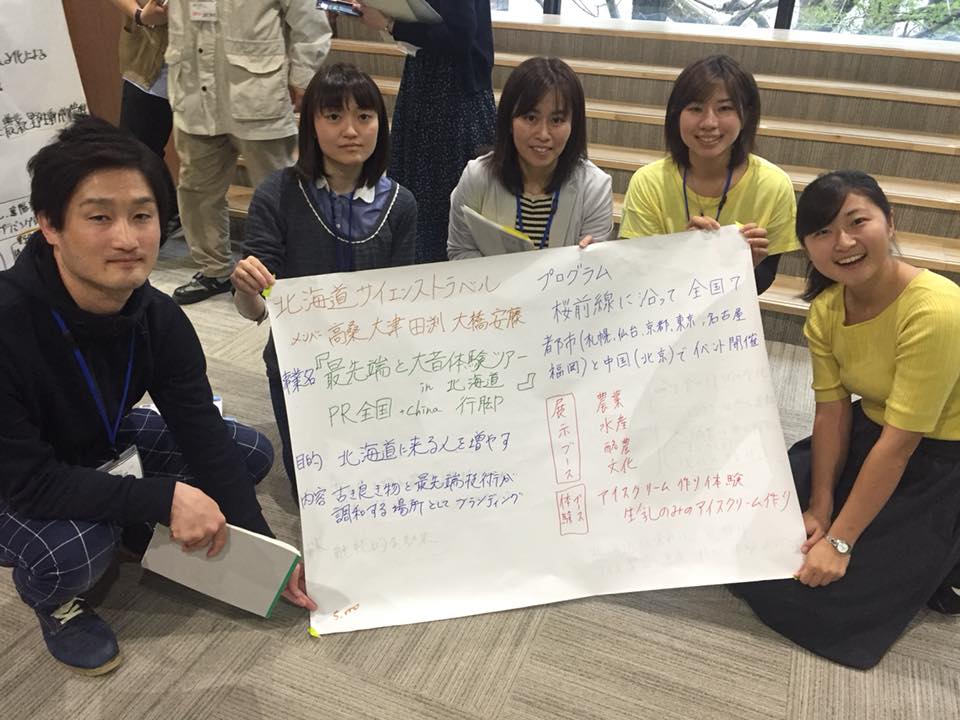 北海道サイエンストラベル
メンバー 高桑 大津 田渕 大橋 安藤
事業名『最先端と大昔体験ツアー
in 北海道』
PR 全国 + China 行脚
目的 北海道に来る人を増やす
内容 古き良き物と最先端技術が
調和する場所としてブランディング
S.ITO
プログラム
桜前線に沿って 全国7
都市(札幌、仙台、京都、東京、名古屋
福岡)と中国(北京)でイベント開催
展示ブース
農業
水産
酪農
文化
体験ブース
アイスクリーム作り体験
生乳のみのアイスクリーム作り